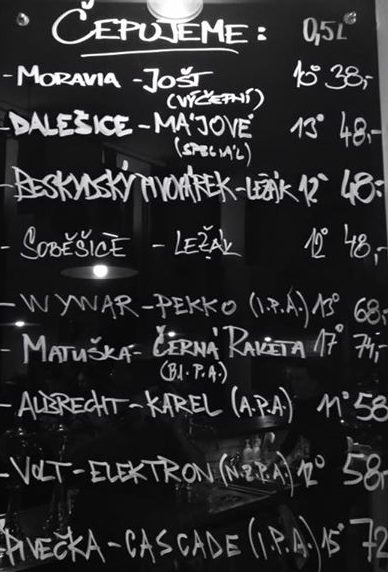 ČEPUJEME: 0,5L
- MORAVIA - JOŠT 10° 38,-
(VÝČEPNÍ)
- DALEŠICE - MÁJOVÉ 13° 48,-
(SPECIÁL)
- BESKYDSKÝ PIVOVÁREK - LEŽÁK 12° 48,-
- SOBĚŠICE - LEŽÁK 12° 48,-
- WYWAR - PEKKO (I.P.A.) 13° 68,-
- MATUŠKA - ČERNÁ RAKETA 17° 74,-
(B.I.P.A.)
- ALBRECHT - KAREL (A.P.A.) 11° 58
- VOLT - ELEKTRON (N.Z.P.A.) 12° 58,-
PIVEČKA - CASCADE (I.P.A.) 15° 72